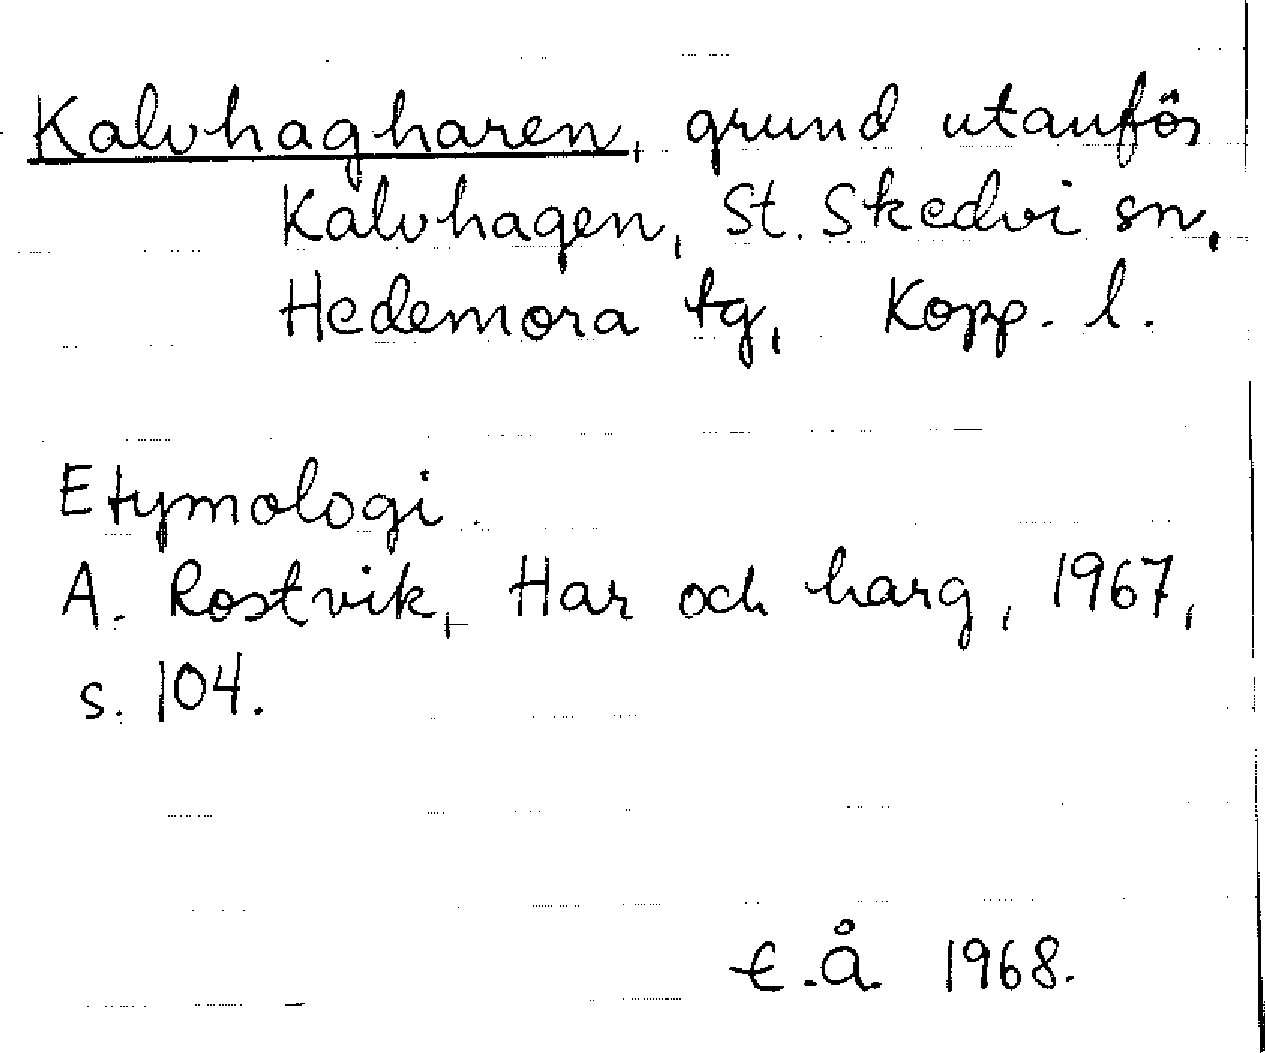 Kalvhagharen, grund utanför
Kalvhagen, St. Skedvi sn,
Hedemora tg, Kopp. l.
Etymologi
A. Rostvik, Har och harg, 1967,
s. 104.
E.Å. 1968.